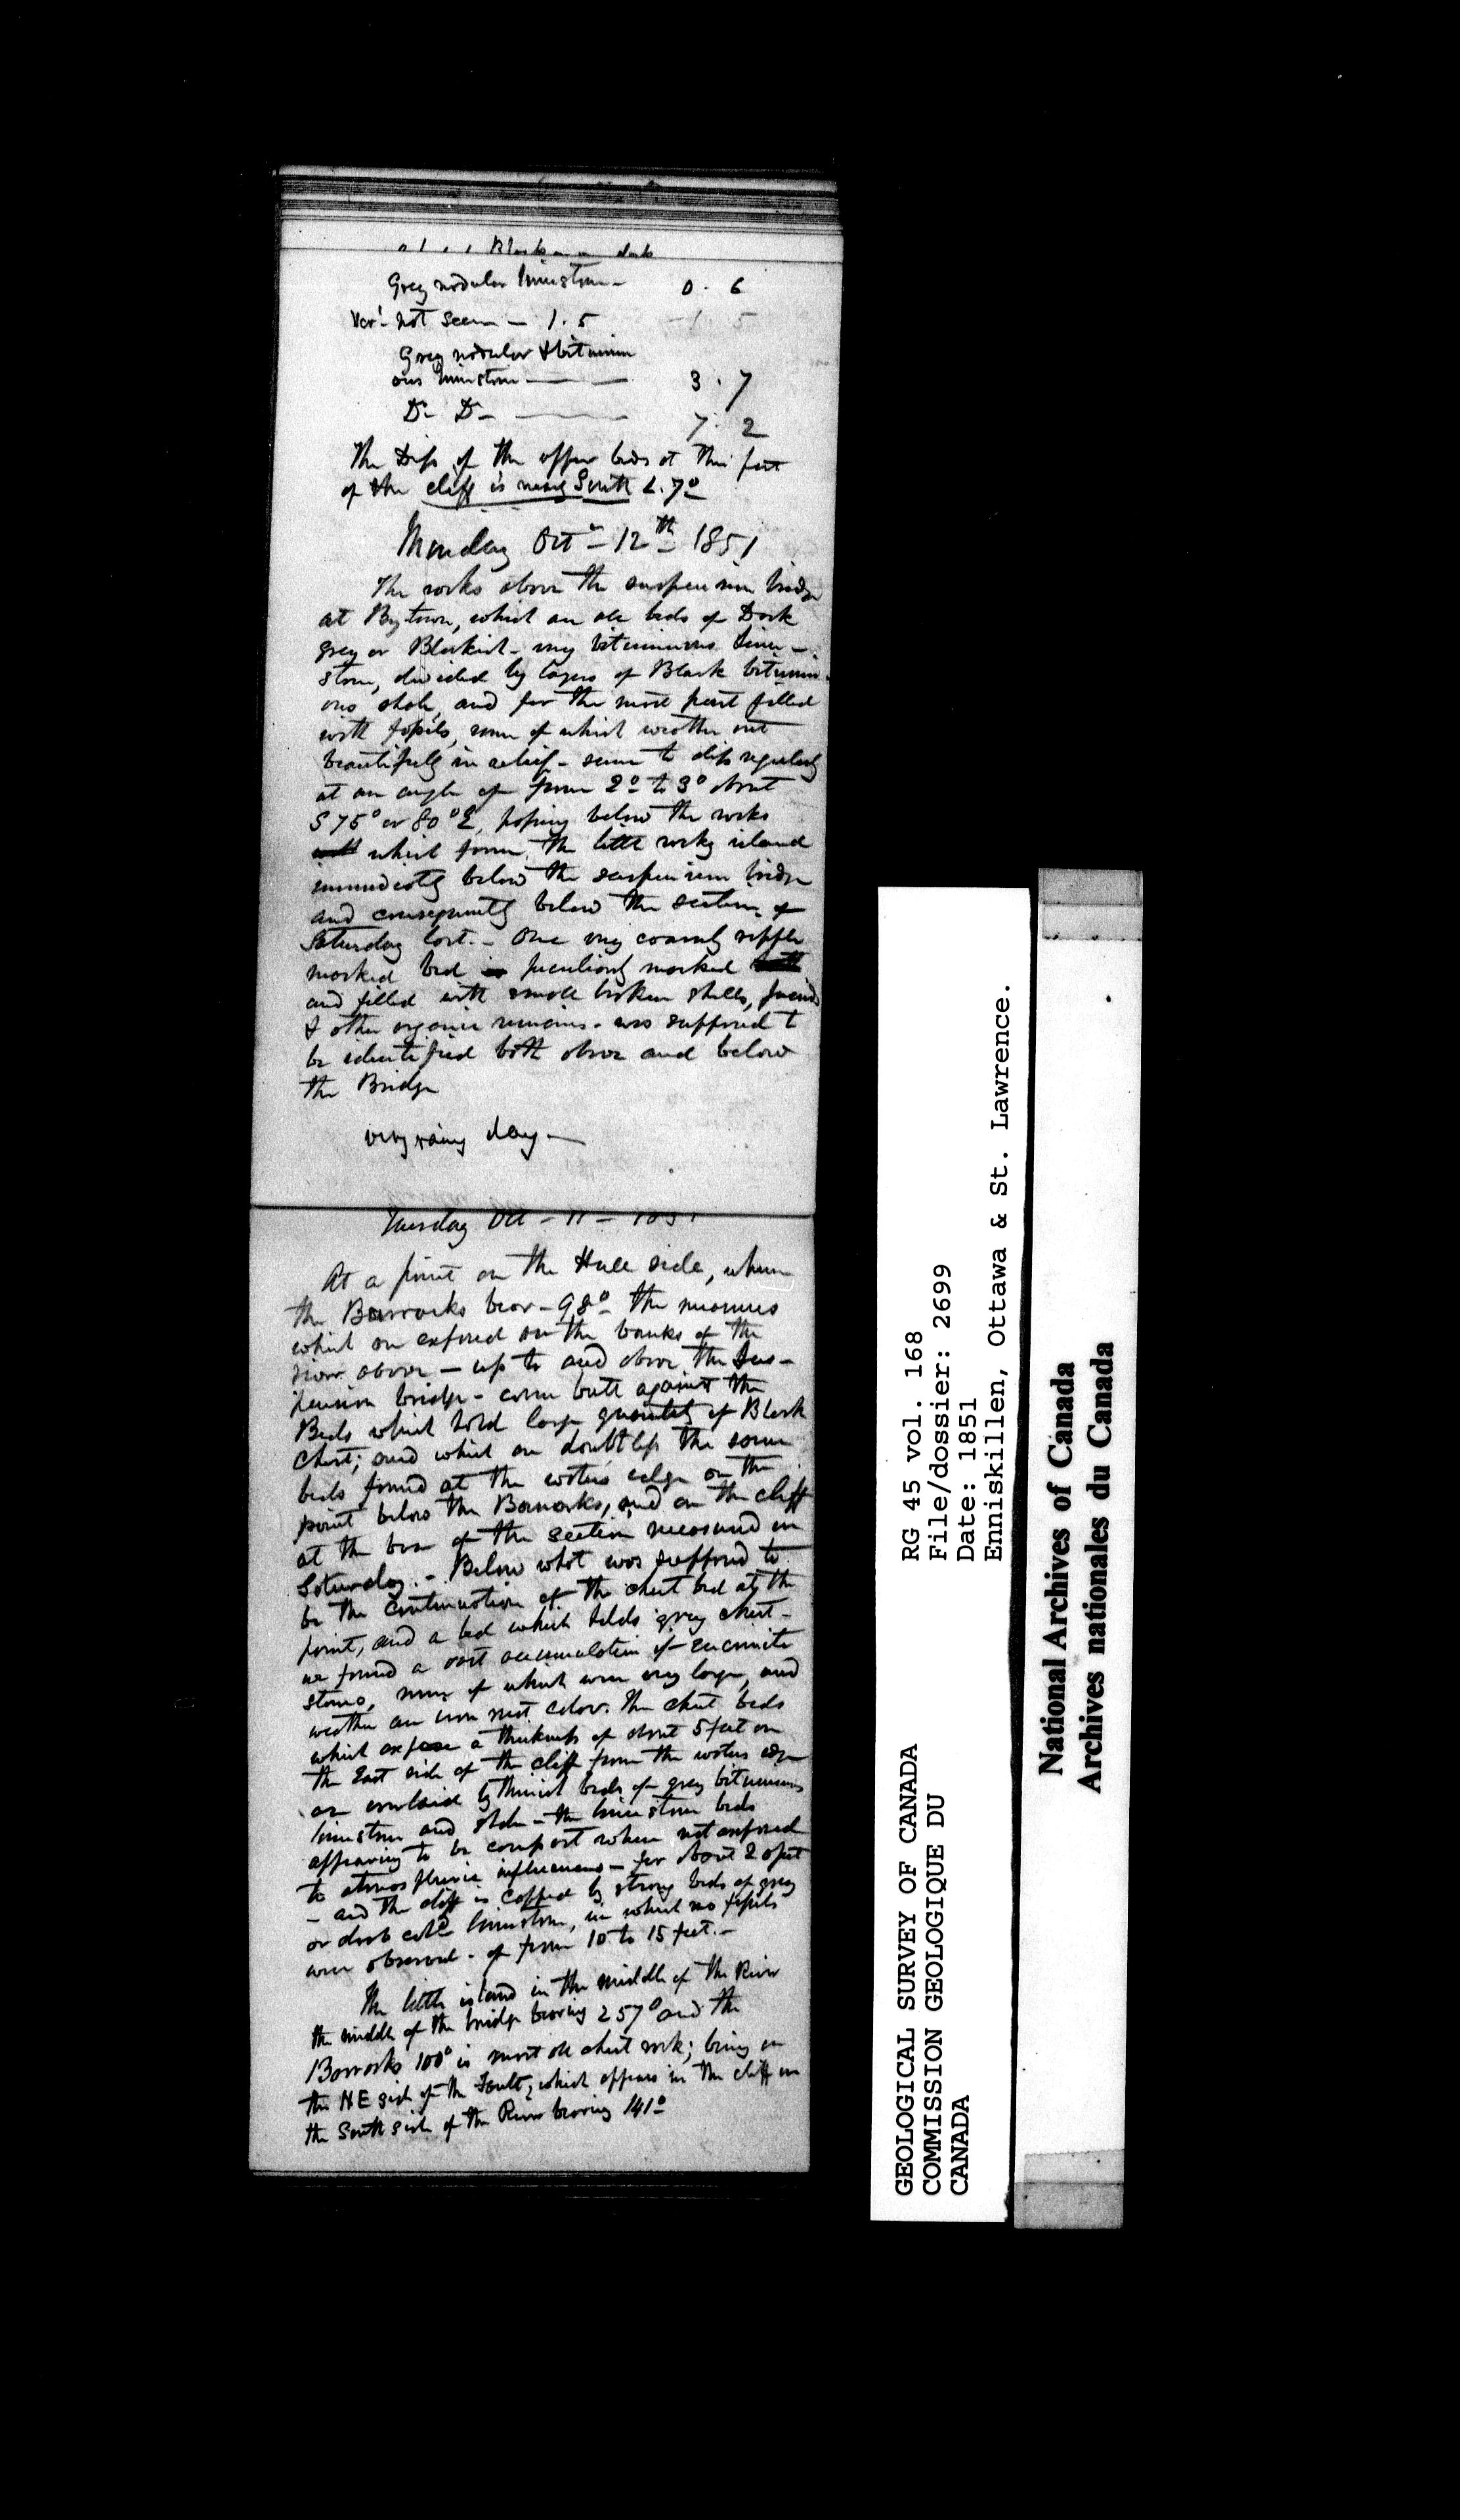 Grey nodular limestone 0. 6
not seen — 1. 5 — 1. 5
Grey nodular & bitumin
ous limestone — — 3. 7
Do Do — 7. 2
The Dip of the upper beds at this part
of the cliff is nearly South L. 7°
Monday Oct 12th 1851
The rocks above the suspension bridge
at Bytown, which are all beds of Dark
grey or Blackish very bituminous lime-
stone, divided by layers of Black bitumin-
ous shale, and for the most part filled
with fossils, some of which weather out
beautifully in relief - seem to dip regularly
at an angle of from 2° to 3° about
S 75° or 80° E, passing below the rocks
which form the little rocky island
immediately below the suspension bridge
and consequently below the section of
Saturday last. - One very coarsely ripple
marked bed peculiarly marked
and filled with small broken shells, fucoids
& other organic remains - was supposed to
be identified both above and below
the Bridge
very rainy day —
Tuesday Oct
At a point on the Hull side, where
the Barracks bear - 98° the measures
which are exposed on the banks of the
river above - up to and above the Sus-
pension bridge - come butt against the
Beds which hold large quantity of Black
Chert; and which are doubtless the same
beds found at the waters edge on the
point below the Barracks, and on the cliff
at the base of the section measured on
Saturday. - Below what was supposed to
be the continuation of the chert bed at the
point, and a bed which holds grey chert -
we found a vast accumulation of encrinite
stems, many of which were very large, and
weather an iron rust color. The chert beds
which expose a thickness of about 5 feet on
the East side of the cliff from the waters edge
are overlaid by thinish beds of grey bituminous
limestone and shale - the limestone beds
appearing to be compact where not exposed
to atmospheric influences - for about 20 feet
- and the cliff is capped by strong beds of grey
or drab cold limestone, in which no fossils
were observed - of from 10 to 15 feet. -
The little island in the middle of the River
the middle of the bridge bearing 257° and the
Barracks 100° is most all chert rock; being on
the NE side of the Fault, which appears in the cliff on
the South side of the River bearing 141°
GEOLOGICAL SURVEY OF CANADA
COMMISSION GEOLOGIQUE DU
CANADA
RG 45 vol. 168
File/dossier: 2699
Date: 1851
Enniskillen, Ottawa & St. Lawrence.
National Archives of Canada
Archives nationales du Canada